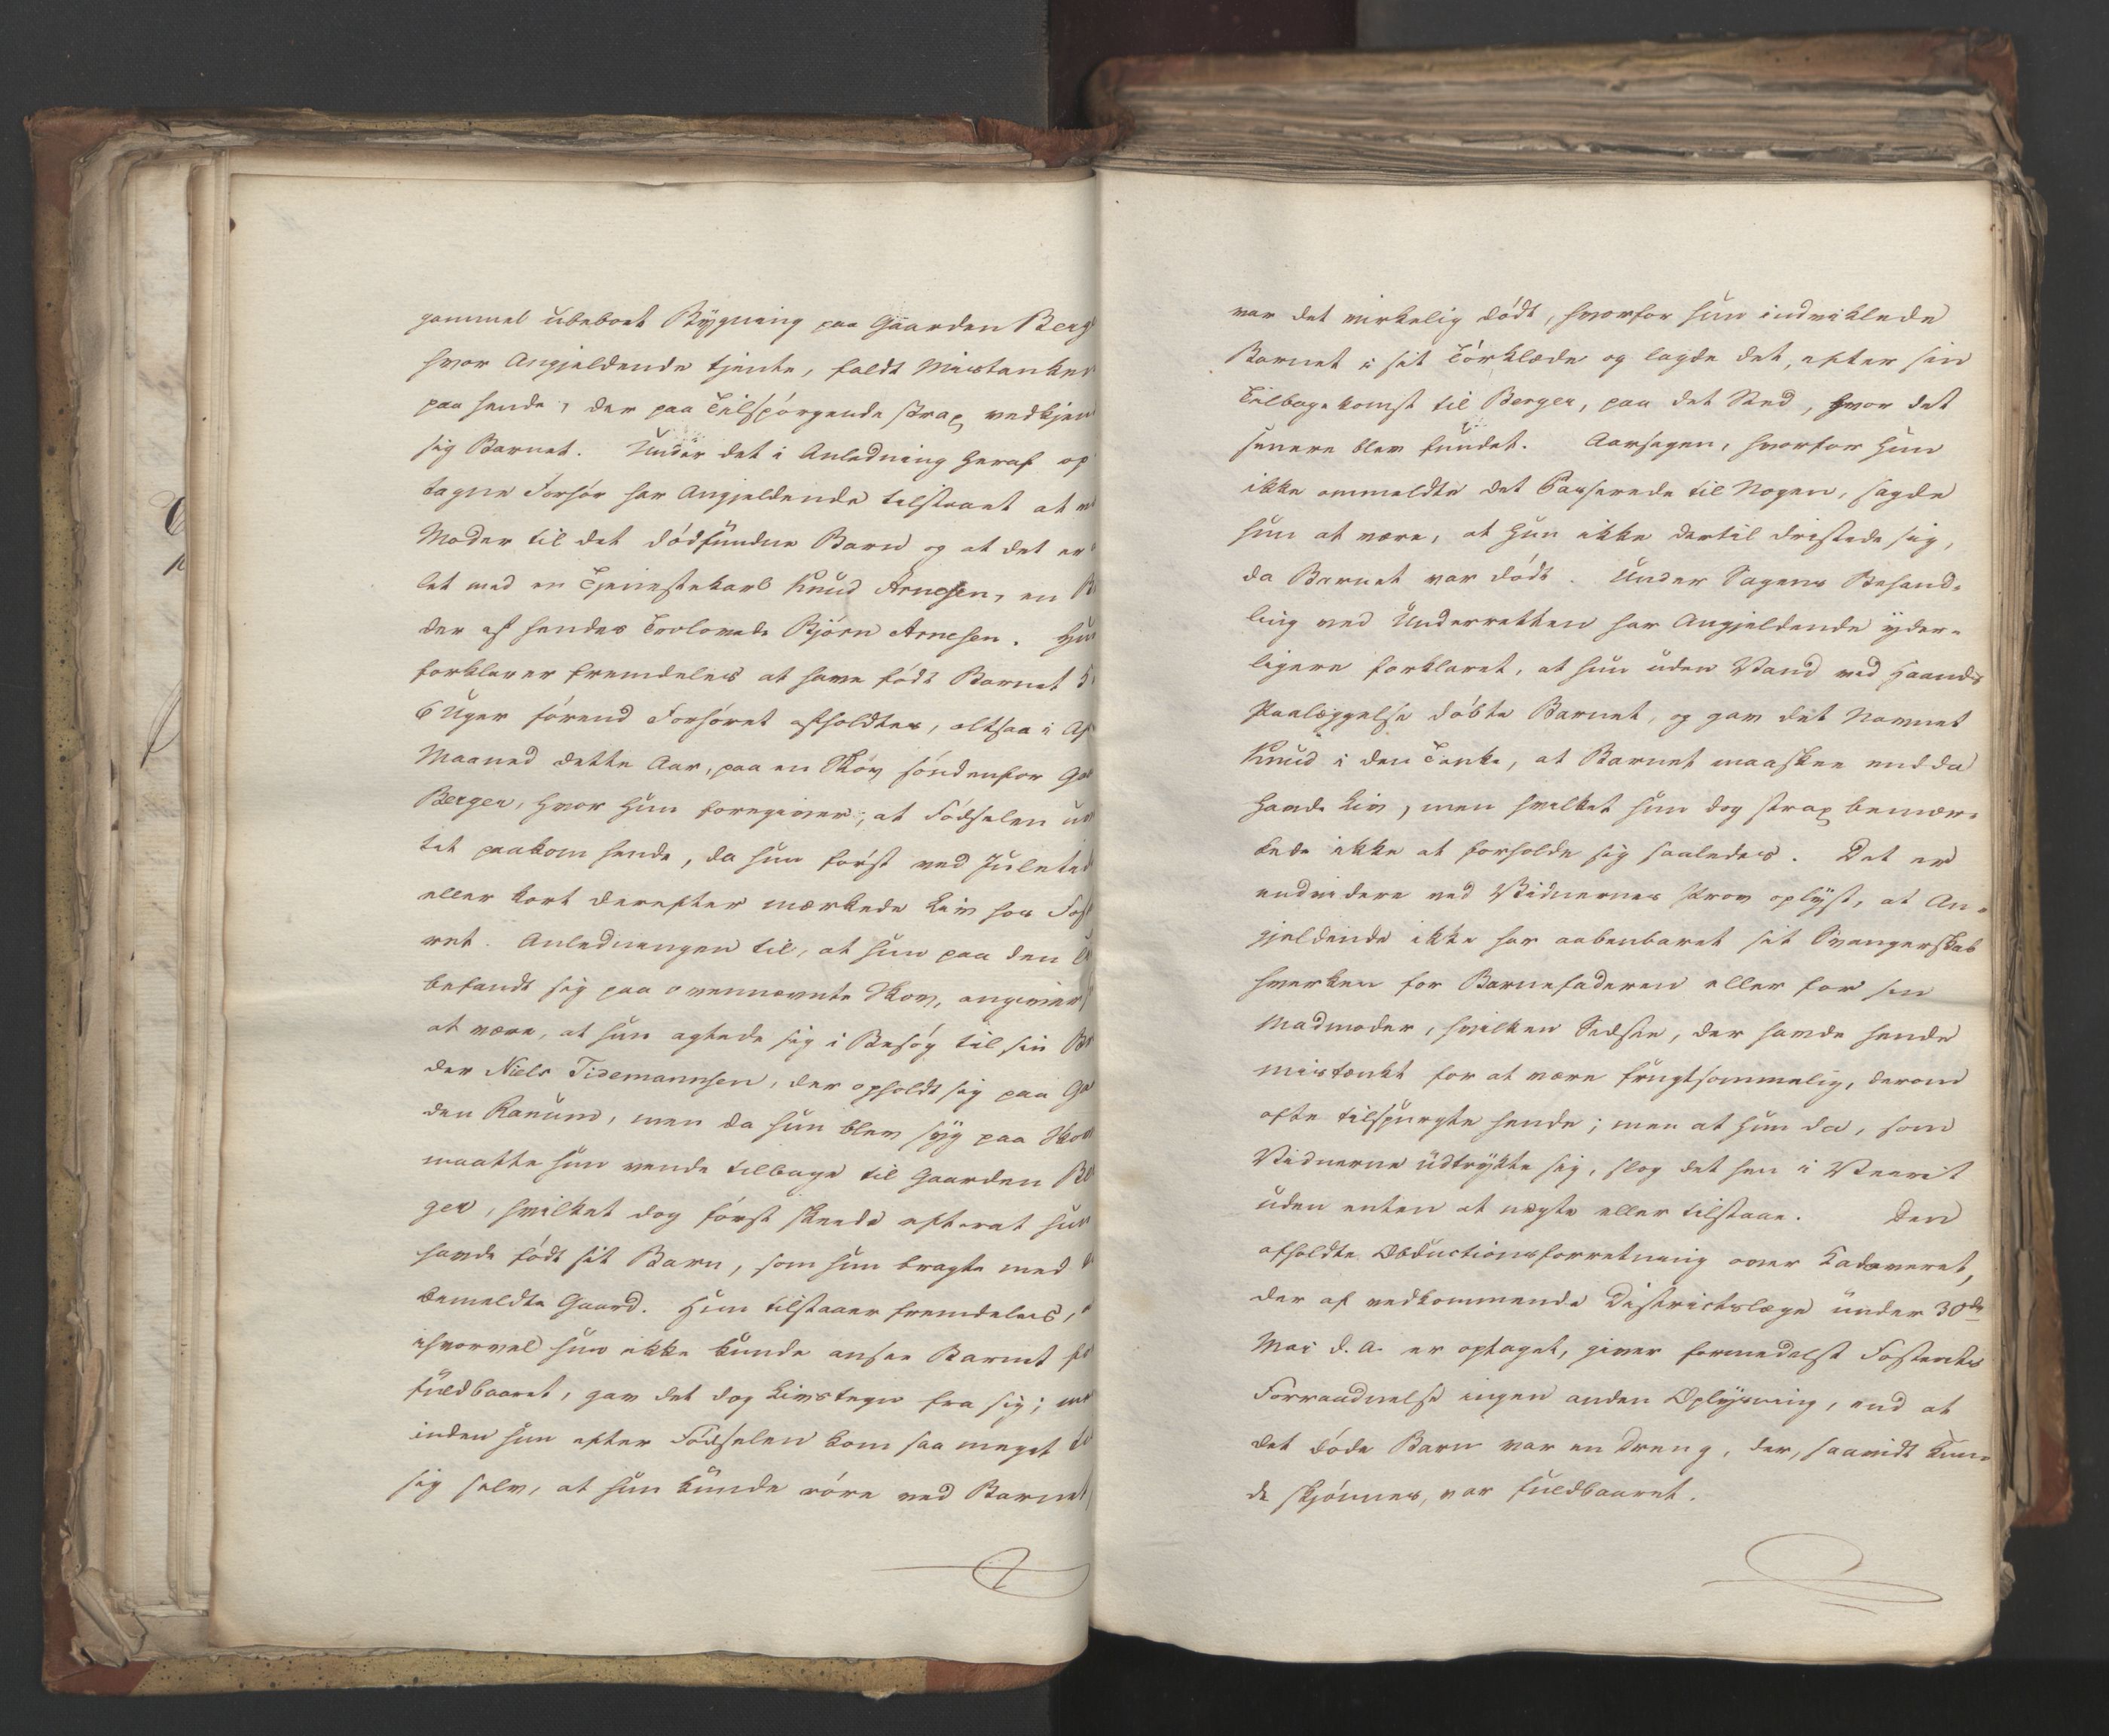 gammel ubeboet Bygning paa Gaarden Berg
hvor Angjeldende tjente, faldt Mistanken
paa hende, der paa Tilspørgende strax vedkjen
sig Barnet. Under det i Anledning heraf op
tagne Forhør har Angjeldende tilstaaet at v
Moder til det dødfundne Barn og at det er
let med en Tjenestekarl Knud Arnesen, en B
der af hendes Trolovede Bjørn Arnesen. Hun
forklarer fremdeles at have født Barnet 5
6 Uger førend Forhøret afholdtes, altsaa i Ap
Maaned dette Aar, paa en Skov søndenfor Gaa
Berger, hvor hun foregiver, at Fødselen uv
tet paakom hende, da hun først ved Juletid
eller kort derefter mærkede Liv hos Fost
ret. Anledningen til, at hun paa den T
befandt sig paa ovennævnte Skov, angiver
at være, at hun agtede sig i Besøg til sin Br
der Niels Tidemannsen, der opholdt sig paa Ga
den Ranum, men da hun blev syg paa Skov
maatte hun vende tilbage til Gaarden Be
ger, hvilket dog først skeede efterat hun
havde født sit Barn, som hun bragte med
bemeldte Gaard. Hun tilstaaer fremdeles, a
ihvorvel hun ikke kunde ansee Barnet fo
fuldbaaret, gav det dog Livstegn fra sig; me
inden hun efter Fødselen kom saa meget ti
sig selv, at hun kunde røre ved Barnet,
var det virkelig dødt, hvorfor hun indviklede
Barnet i sit Tørklæde og lagde det, efter sin
Tilbagekomst til Berger, paa det Sted, hvor det
senere blev fundet. Aarsagen, hvorfor hun
ikke anmeldte det Passerede til Nogen, sagde
hun at være, at hun ikke dertil dristede sig,
da Barnet var dødt. Under Sagens Behand-
ling ved Underretten har Angjeldende yder-
ligere forklaret, at hun uden Vand ved Haands
Paalæggelse døbte Barnet, og gav det Navnet
Knud i den Tanke, at Barnet maaskee endda
havde Liv, men hvilket hun dog strax bemær-
kede ikke at forholde sig saaledes. Det er
endvidere ved Vidnernes Prov oplyst, at An-
gjeldende ikke har aabenbaret sit Svangerskab
hverken for Barnefaderen eller for sin
Madmoder, hvilken Sidste, der havde hende
mistænkt for at være frugtsommelig, derom
ofte tilspurgte hende; men at hun da, som
Vidnerne udtrykte sig, slog det hen i Veeret
uden enten at nægte eller tilstaae. Den
afholdte Obductionsforretning over Kadaveret,
der af vedkommende Districtslæge under 30de
Mai d. A. er optaget, giver formedelst Fosterets
Forraadnelse ingen anden Oplysning, end at
det døde Barn var en Dreng, der, saavidt kun-
de skjønnes, var fuldbaaret.